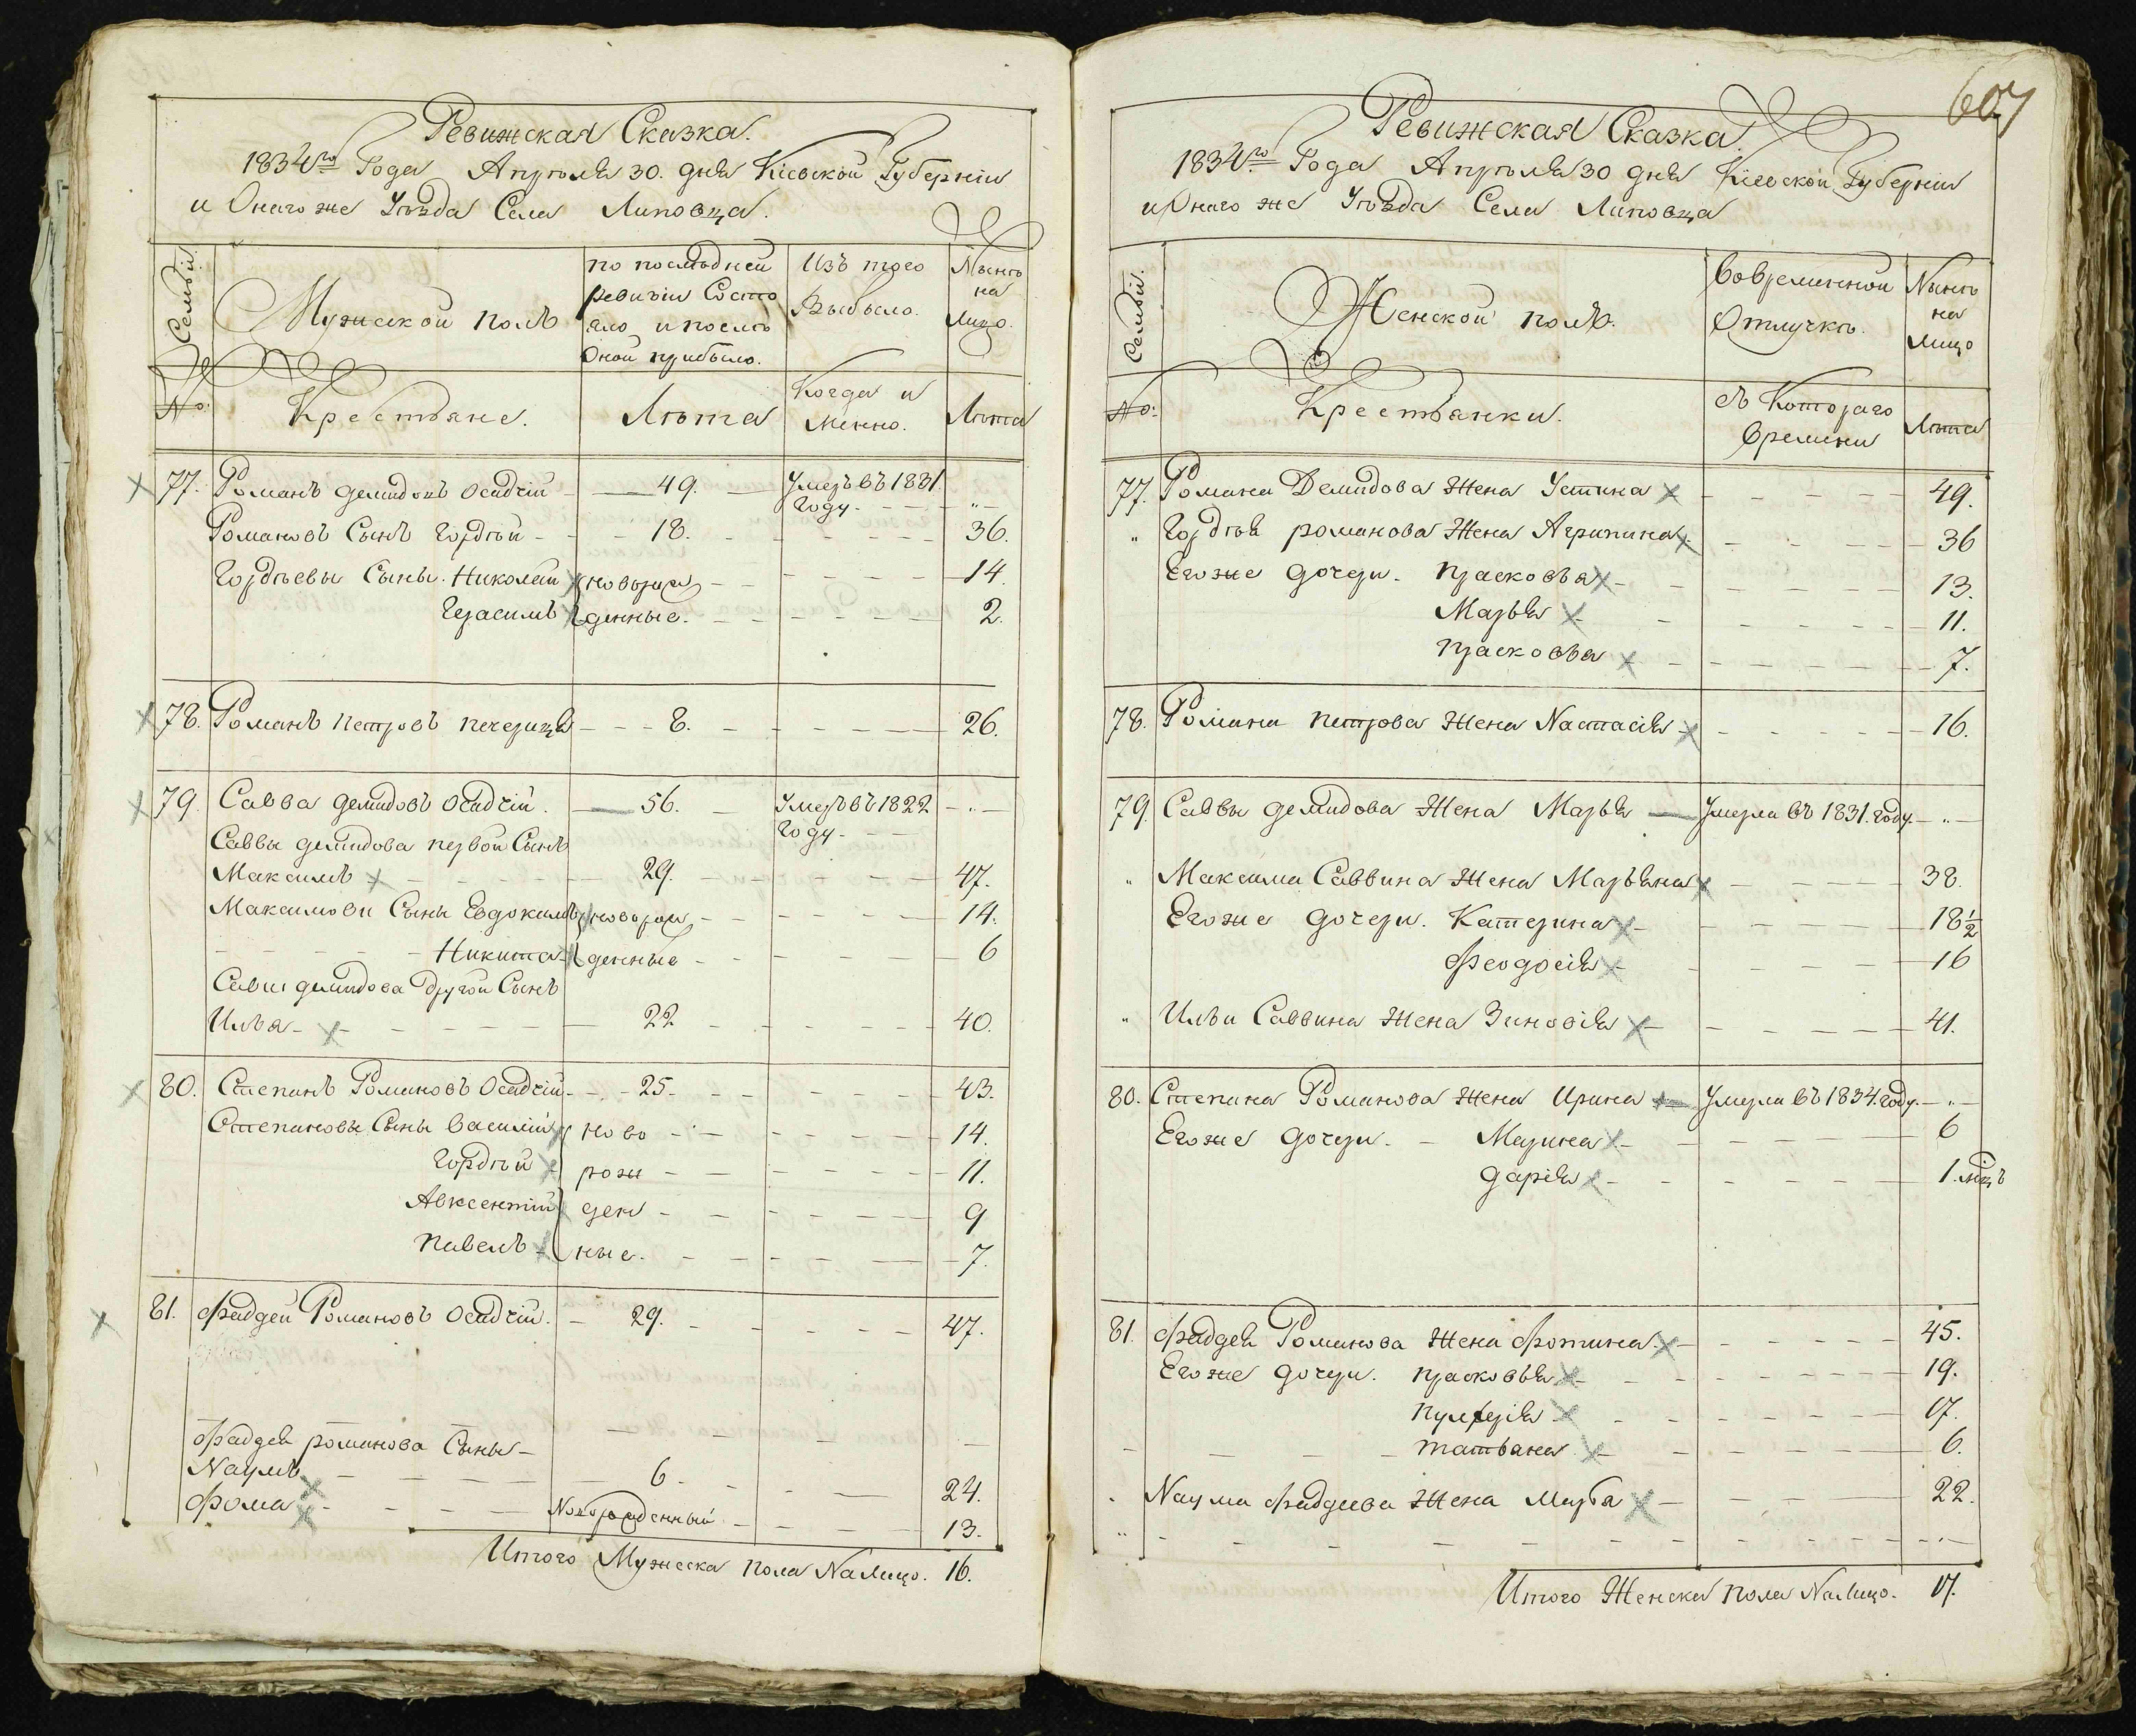 Ревижская Сказка.
1834го Года Апреля 30. дня Кіевской Губерніи
и Онаго же Уѣзда Села Липовца.
Семьи.
Мужеской полъ
по последней
ревизіи Состо
яло и послѣ
Оной прибыло.
Изъ того
Выбыло.
Нынѣ
на
Лицо.
No.
Крестьяне.
Лѣта
Когда и
Менно.
Лѣта
77. Романъ Демидовъ Осадчій 49. Умеръ въ 1831.
Году. "
Романовъ Сынъ Гордѣй 18. 36.
Гордѣевы Сыны. Николай новорож 14.
Герасимъ денные. 2.
78. Романъ Петровъ Печерица 8. 26.
79. Савва Демидовъ Осадчій. 56. Умеръ въ 1822 "
Году
Саввы Демидова первой Сынъ
Максимъ 29. 47.
Максимови Сыны Евдокимъ новорож 14.
Никита денные 6
Савы Демидова Другой Сынъ
Илья 22 40.
80. Степанъ Романовъ Осадчій 25 43.
Степановы Сыны Василій ново 14.
Гордѣй рож 11.
Авксентій ден 9
Павелъ ные. 7.
81. Фаддей Романовъ Осадчій. 29. 47.
Фаддея романова Сыны
Наумъ 6 24.
Фома Новорожденный 13.
Итого Мужеска пола Налицо. 16.
607
Ревижская Сказка.
1834.го Года Апреля 30 дня Кіевской Губерніи
и Онаго же Уѣзда Села Липовца
Семьи.
Женской полъ.
Вовременной
Отлучкѣ.
Нынѣ
на
Лицо
No:
Крестьянки.
съ Котораго
Времени
Лѣта
77. Романа Демидова Жена Устина 49.
" Гордѣя романова Жена Агрипина 36
Егоже Дочери. Прасковья 13.
Марья 11.
Прасковья 7.
78. Романа Петрова Жена Настасія 16.
79. Саввы Демидова Жена Марья Умерла въ 1831. году. "
" Максима Саввина Жена Марьяна 38.
Егоже Дочери. Катерина 18 1/2
Феодосія 16
" Ильи Саввина Жена Зиновія 41.
80. Степана Романова Жена Ирина Умерла въ 1834. году. "
Егоже Дочери. Марина 6
Дарія 1. мцъ
81. Фаддея Романова Жена Фотина 45.
Егоже Дочери. Прасковья 19.
Пулхерія 17.
Татьяна 6.
Наума Фаддеева Жена Марфа 22.
"
Итого Женска пола Налицо. 17.